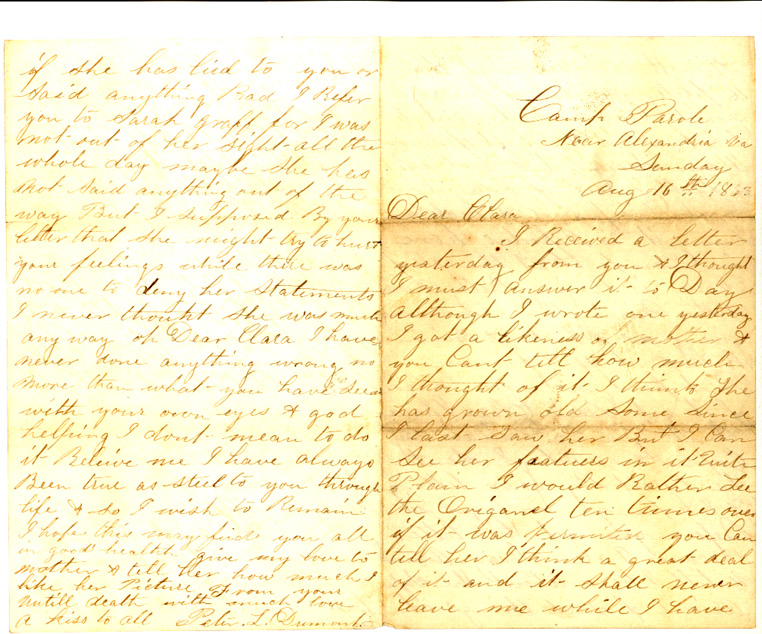 Camp Parole
Near Alexandria Va
Sunday
Aug 16th 1863
Dear Clara
I Received a letter
yesterday from you & I thought
I must answer it to Day
although I wrote one yesterday
I got a likeness of mother &
you Cant tell how much
I thought of it I think She
has grown old Some Since
I last Saw her But I Can
See her featuers in it Quite
Plain I would Rather See
the Origanel ten times over
if it was Permited you Can
tell her I think a great deal
of it and it Shall never
leave me while I have
if she has lied to you or
Said anything Bad I Refer
you to Sarah graff for I was
not out of her sight all the
whole day maybe she has
not Said anything out of the
way But I supposed By your
letter that she might try to hurt
your feelings while there was
no one to deny her Statements
I never thought she was much
any way oh Dear Clara I have
never done anything wrong no
more than what you have Seen
with your own eyes & god
helping I dont mean to do
it Beleive me I have always
Been true as steel to you through
life & so I wish to Remain
I hope this may find you all
in good health give my love to
mother & tell her how much I
like her Picture From your
untill death with much love
a kiss to all Peter L. Dumont